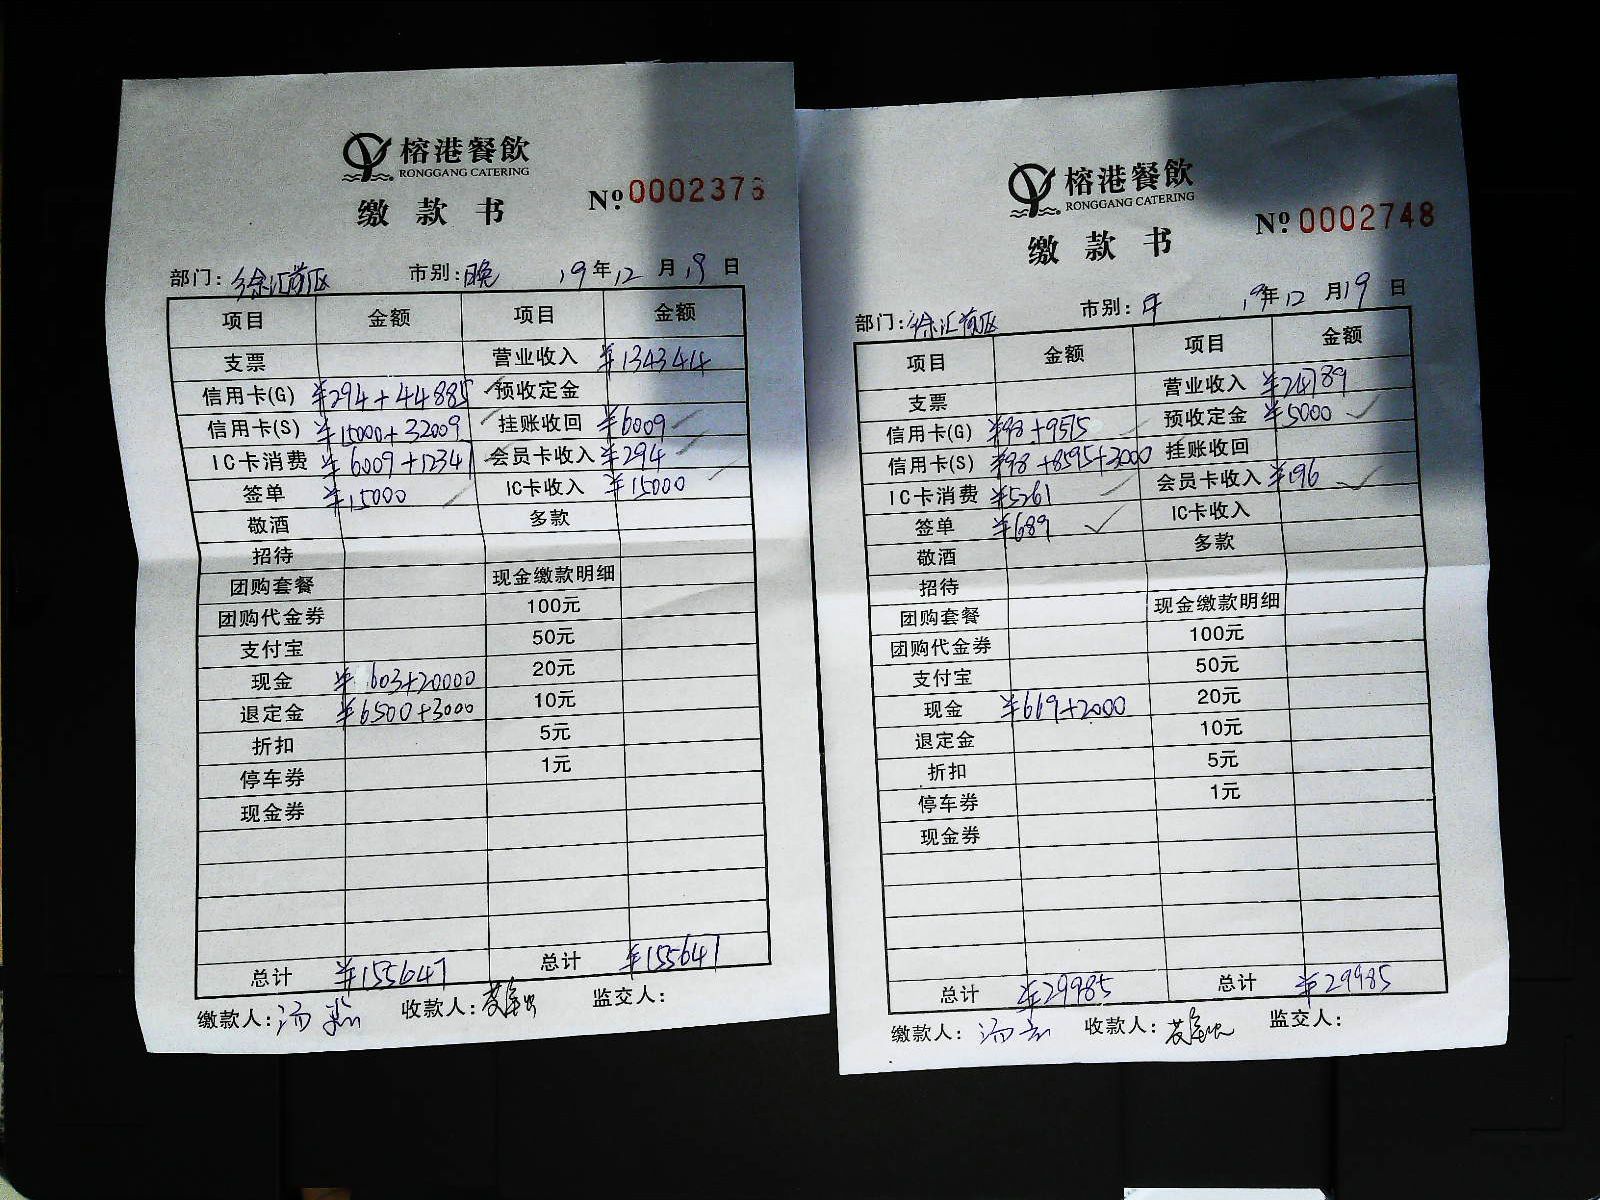 榕港餐飲
RONGGANG CATERING
缴款书
№ 0002376
部门: 徐汇前区 市别: 晚 19年12月19日
项目 金额 项目 金额
支票 营业收入 ¥134344
信用卡(G) ¥294+44885 预收定金
信用卡(S) ¥15000+32009 挂账收回 ¥6009
IC卡消费 ¥6009+12347 会员卡收入 ¥294
签单 ¥15000 IC卡收入 ¥15000
敬酒 多款
招待
团购套餐 现金缴款明细
团购代金券 100元
支付宝 50元
现金 ¥603+20000 20元
退定金 ¥6500+3000 10元
折扣 5元
停车券 1元
现金券
总计 ¥155647 总计 ¥155647
缴款人: 收款人: 监交人:
榕港餐飲
RONGGANG CATERING
缴款书
№ 0002748
部门: 徐汇前区 市别: 午 19年12月19日
项目 金额 项目 金额
支票 营业收入 ¥24789
信用卡(G) ¥98+9575 预收定金 ¥5000
信用卡(S) ¥98+8595+3000 挂账收回
IC卡消费 ¥5261 会员卡收入 ¥196
签单 ¥689 IC卡收入
敬酒 多款
招待
团购套餐 现金缴款明细
团购代金券 100元
支付宝 50元
现金 ¥669+2000 20元
退定金 10元
折扣 5元
停车券 1元
现金券
总计 ¥29985 总计 ¥29985
缴款人: 收款人: 监交人: